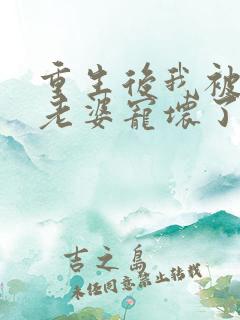 重生後我被
老婆寵壞了
吉之島
未經同意禁止轉載